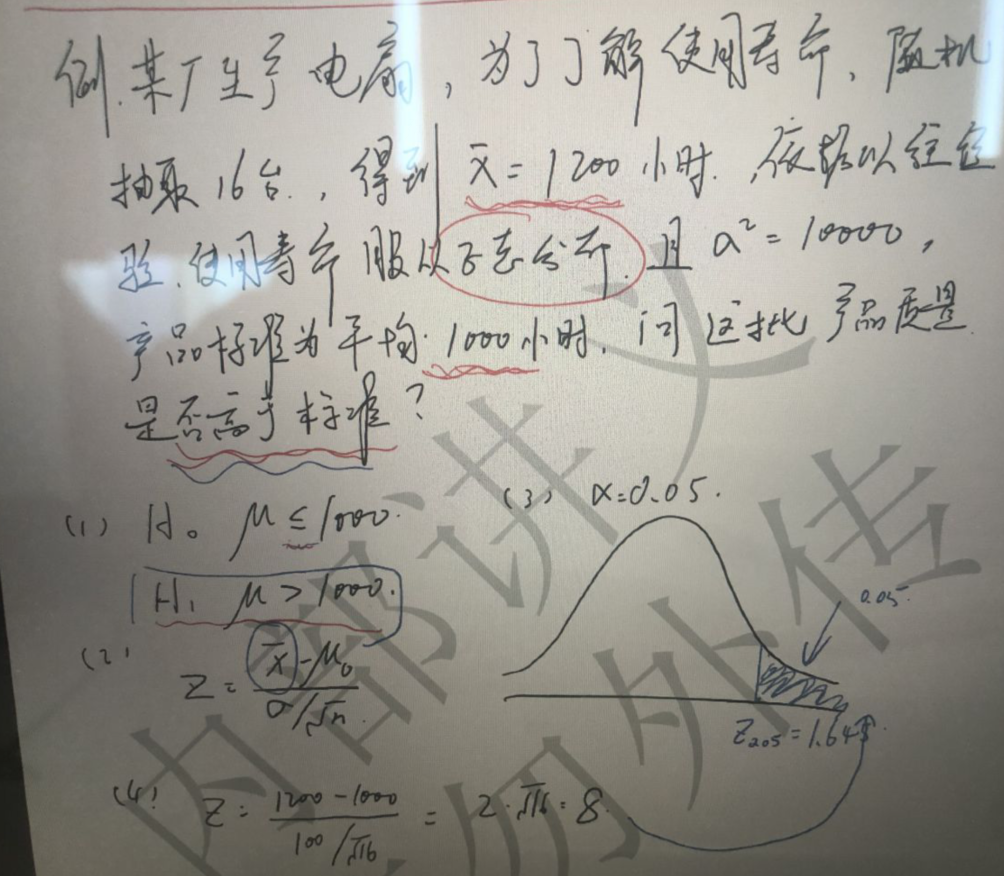 例.某厂生产电扇,为了了解使用寿命,随机
抽取16台.,得到 x̄=1200小时.,依据以往经
验.使用寿命服从正态分布.且σ²=10000,
产品标准为平均1000小时.问这批产品质量
是否高于标准?
(1) H₀ μ≤1000.
H₁ μ>1000.
(2) Z = (x̄-μ₀)/(σ/√n)
(3) α=0.05.
0.05.
Z₀.₀₅=1.645.
(4) Z = (1200-1000)/(100/√16) = 2·√16=8
内部讲义
勿外传